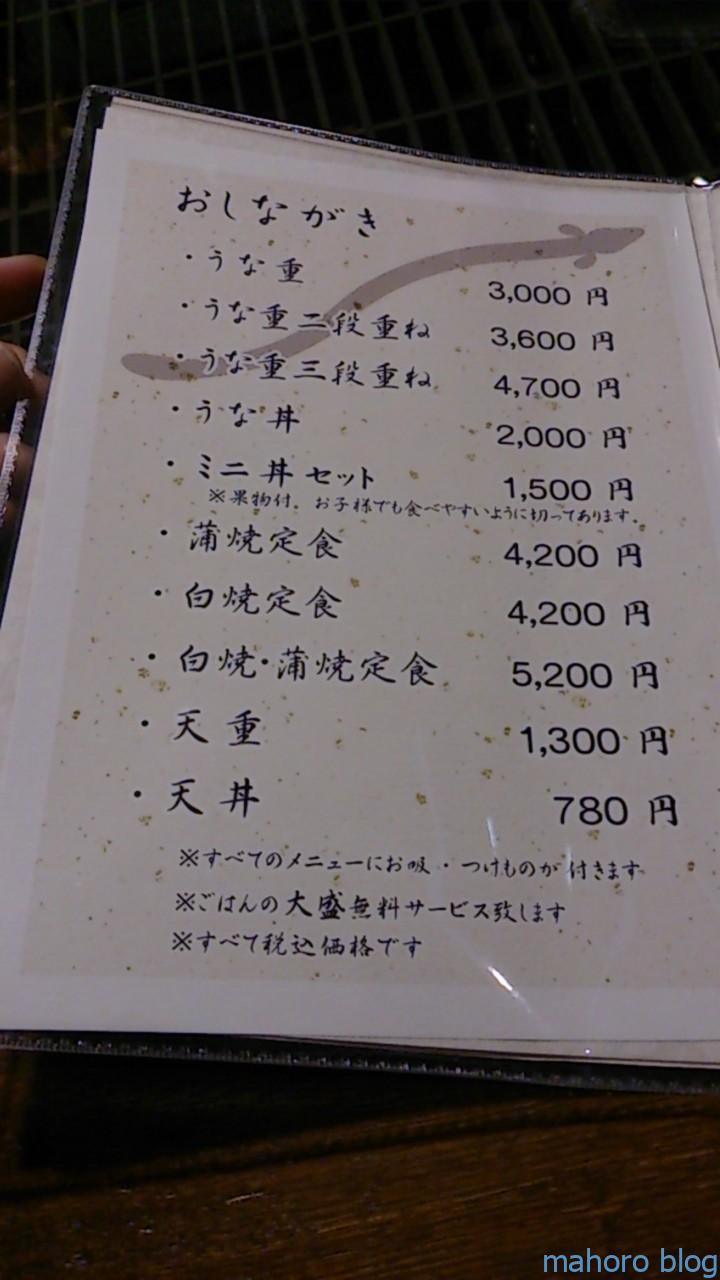 おしながき
・うな重 3,000 円
・うな重二段重ね 3,600 円
・うな重三段重ね 4,700 円
・うな丼 2,000 円
・ミニ丼セット 1,500 円
※果物付。お子様でも食べやすいように切ってあります。
・蒲焼定食 4,200 円
・白焼定食 4,200 円
・白焼・蒲焼定食 5,200 円
・天重 1,300 円
・天丼 780 円
※すべてのメニューにお吸・つけものが付きます
※ごはんの大盛無料サービス致します
※すべて税込価格です
mahoro blog